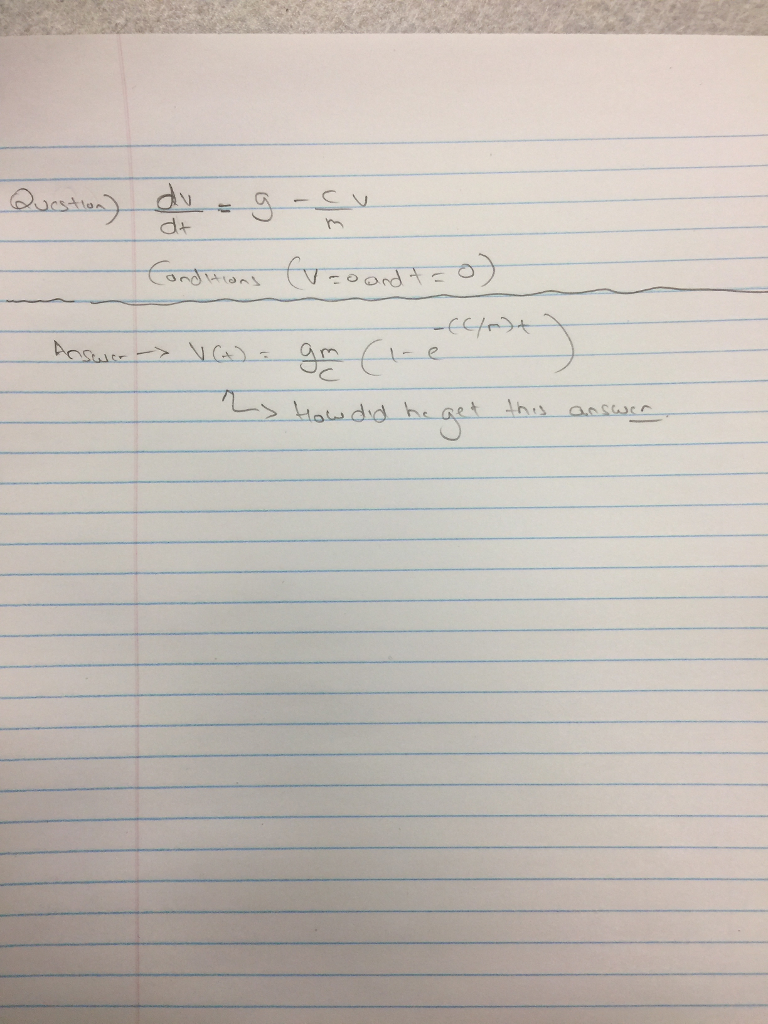 Question) dv/dt = g - c/m v
Conditions (v = 0 and t = 0)
Answer → v(t) = gm/c (1 - e^-(c/m)t)
↳ How did he get this answer.